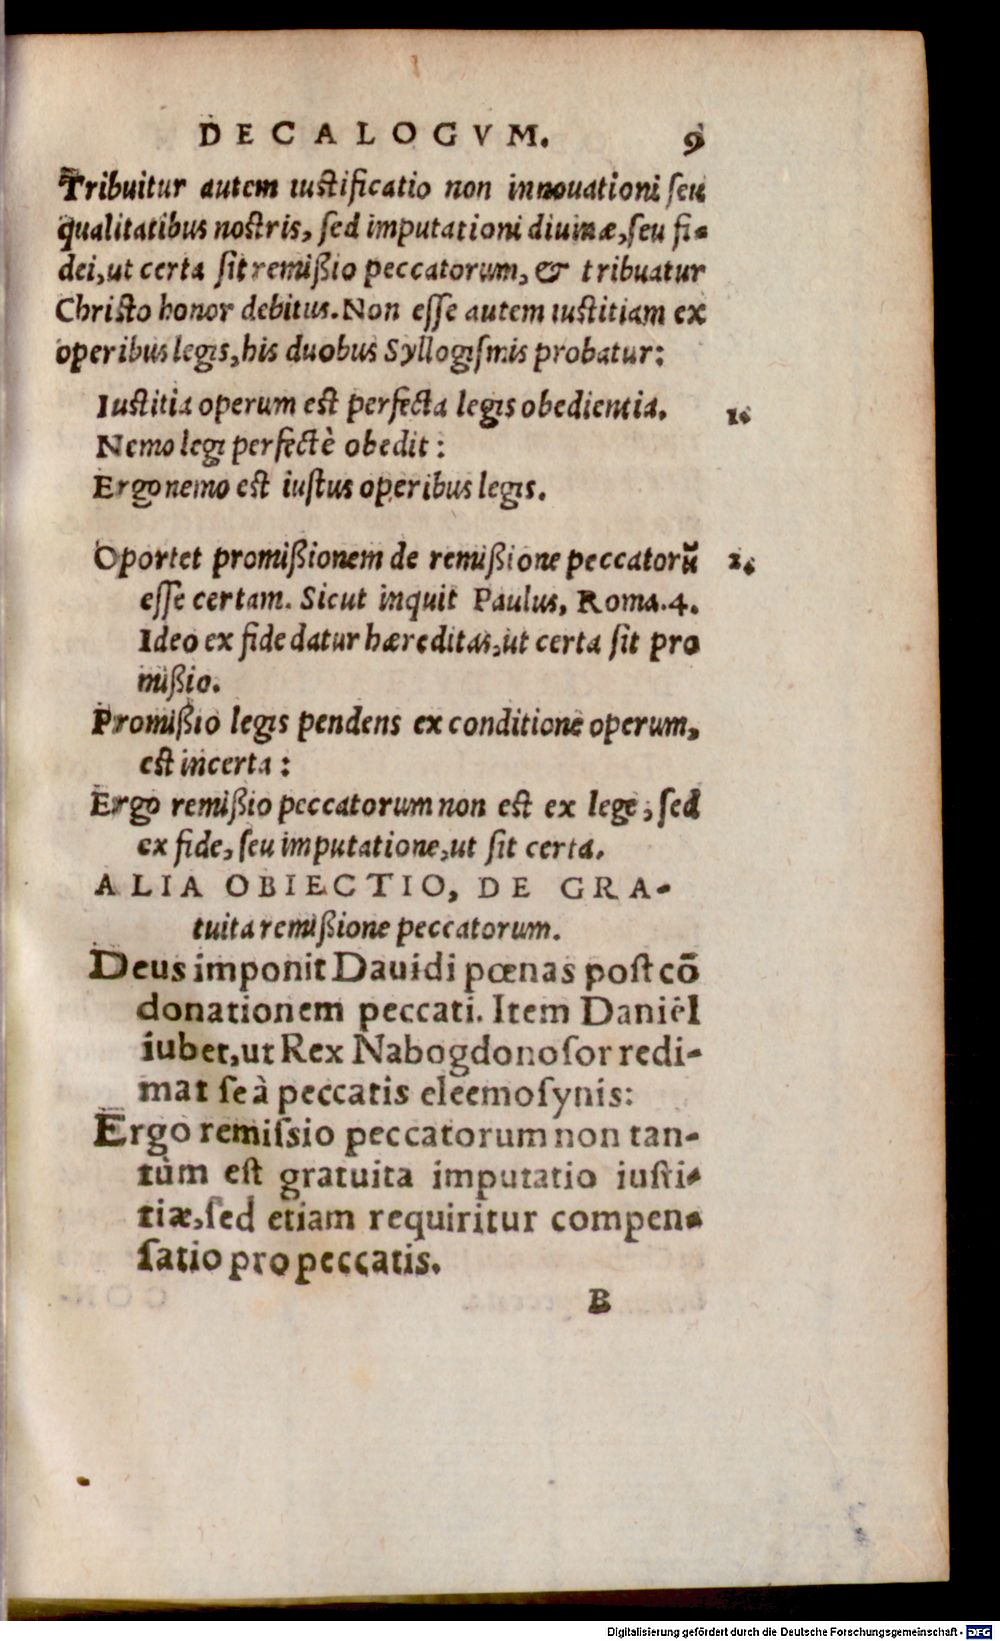 DECALOGVM. 9
Tribuitur autem iustificatio non innouationi seu
qualitatibus nostris, sed imputationi diuinæ, seu fi-
dei, ut certa sit remißio peccatorum, & tribuatur
Christo honor debitus. Non esse autem iustitiam ex
operibus legis, his duobus Syllogismis probatur:
Iustitia operum est perfecta legis obedientia. 1.
Nemo legi perfectè obedit:
Ergo nemo est iustus operibus legis.
Oportet promißionem de remißione peccatorũ 2.
esse certam. Sicut inquit Paulus, Roma. 4.
Ideo ex fide datur hæreditas, ut certa sit pro
mißio.
Promißio legis pendens ex conditione operum,
est incerta:
Ergo remißio peccatorum non est ex lege, sed
ex fide, seu imputatione, ut sit certa.
ALIA OBIECTIO, DE GRA-
tuita remißione peccatorum.
Deus imponit Dauidi pœnas post cõ
donationem peccati. Item Daniêl
iubet, ut Rex Nabogdonosor redi-
mat se à peccatis eleemosynis:
Ergo remissio peccatorum non tan-
tùm est gratuita imputatio iusti-
tiæ, sed etiam requiritur compen-
satio pro peccatis.
B
Digitalisierung gefördert durch die Deutsche Forschungsgemeinschaft - DFG